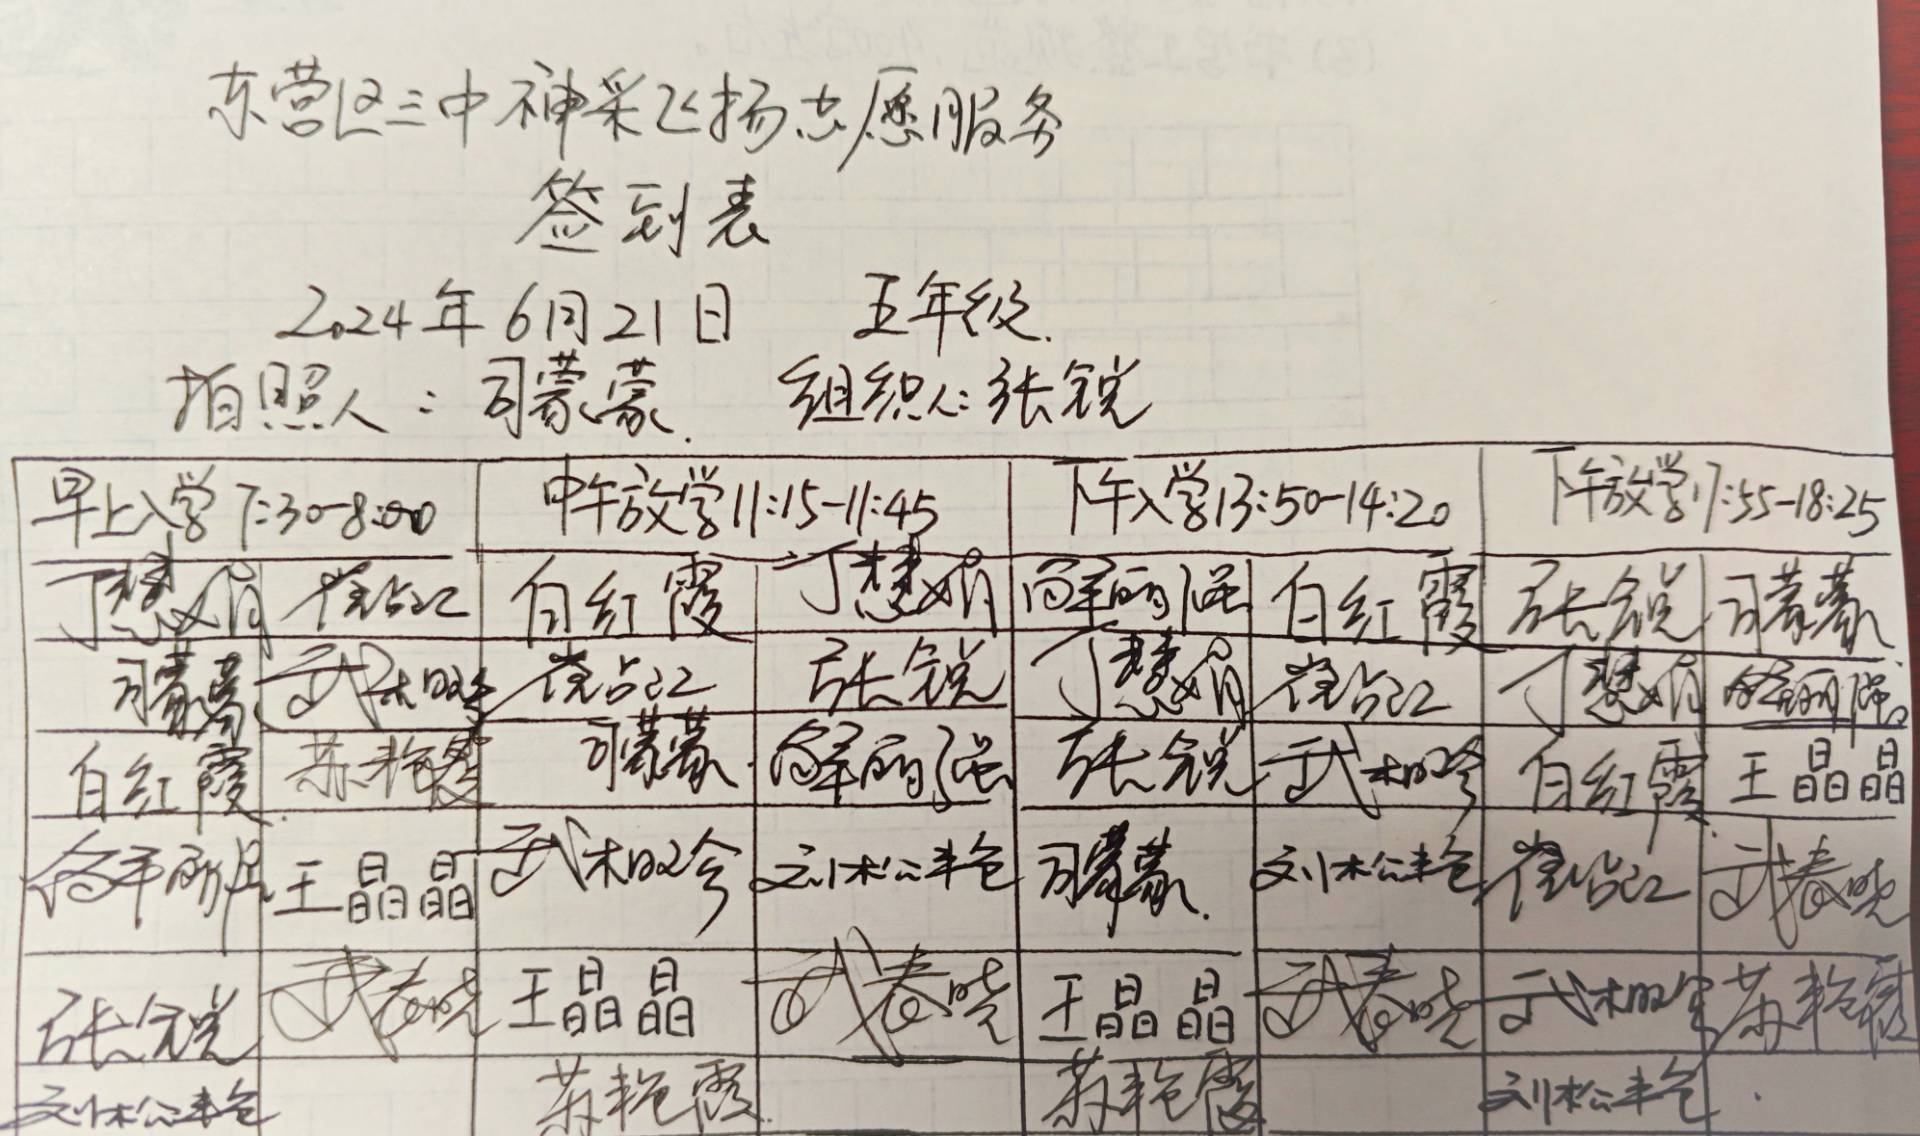 东营区三中神采飞扬志愿服务
签到表
2024年6月21日 五年级.
拍照人：司蒙蒙. 组织人：张锐
早上入学7:30-8:00 中午放学11:15-11:45 下午入学13:50-14:20 下午放学17:55-18:25
丁慧娟 崔占江 白红霞 丁慧娟 解丽强 白红霞 张锐 司蒙蒙
司蒙蒙 武相昤 崔占江 张锐 丁慧娟 崔占江 丁慧娟 解丽强
白红霞 苏艳霞 司蒙蒙 解丽强 张锐 武相昤 白红霞 王晶晶
王晶晶 武相昤 刘松艳 司蒙蒙 刘松艳 崔占江 武春晓
张锐 武春晓 王晶晶 武春晓 王晶晶 武春晓 武相昤 苏艳霞
刘松艳 苏艳霞 苏艳霞 刘松艳